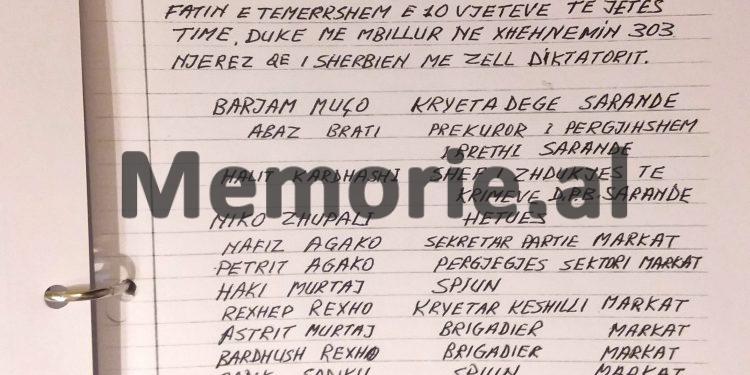 FATIN E TEMERRSHEM E 10 VJETEVE TE JETES
TIME, DUKE ME MBILLUR NE XHEHNEMIN 303
NJEREZ QE I SHERBIEN ME ZELL DIKTATORIT.
BARJAM MUÇO KRYETA DEGE SARANDE
ABAZ BRATI PREKUROR I PERGJIHSHEM
I RRETHI SARANDE
HALIT KARDHASHI SHEF I ZHDUKJES TE
KRIMEVE D.P.B. SARANDE
NIKO ZHUPALI HETUES
NAFIZ AGAKO SEKRETAR PARTIE MARKAT
PETRIT AGAKO PERGJEGJES SEKTORI MARKAT
HAKI MURTAJ SPIUN
REXHEP REXHO KRYETAR KESHILLI MARKAT
ASTRIT MURTAJ BRIGADIER MARKAT
BARDHUSH REXHO BRIGADIER MARKAT
SPIUN MARKAT
Memorie.al